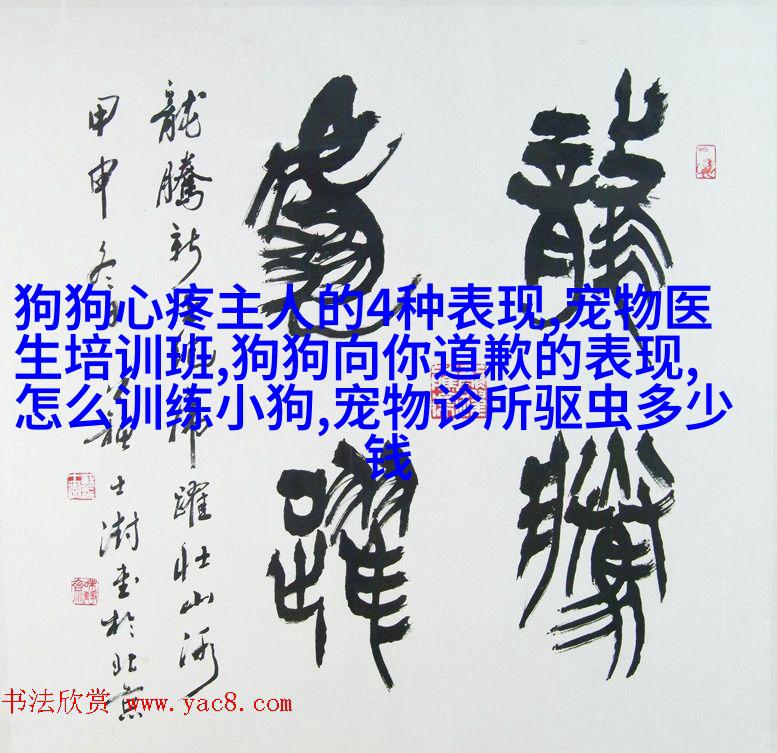 龍騰
虎躍
龍騰新世紀虎躍壯山河
甲申冬月蘇士澍書於北京
狗狗心疼主人的4种表现,宠物医
生培训班,狗狗向你道歉的表现,
怎么训练小狗,宠物诊所驱虫多少
钱
书法欣赏 www.yac8.com